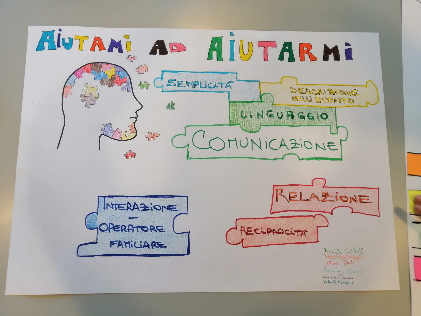 AiUTAMi AD AiUTARMi
SEMPLICITÀ
LINGUAGGIO
COMUNICAZIONE
INTERAZIONE
-
OPERATORE
FAMILIARE
RELAZIONE
RECIPROCITÀ